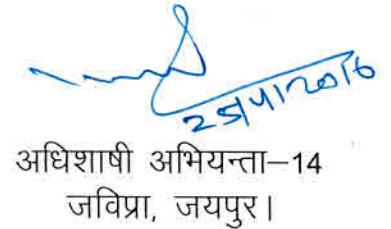 25/4/2016
अधिशाषी अभियन्ता–14
जविप्रा, जयपुर।